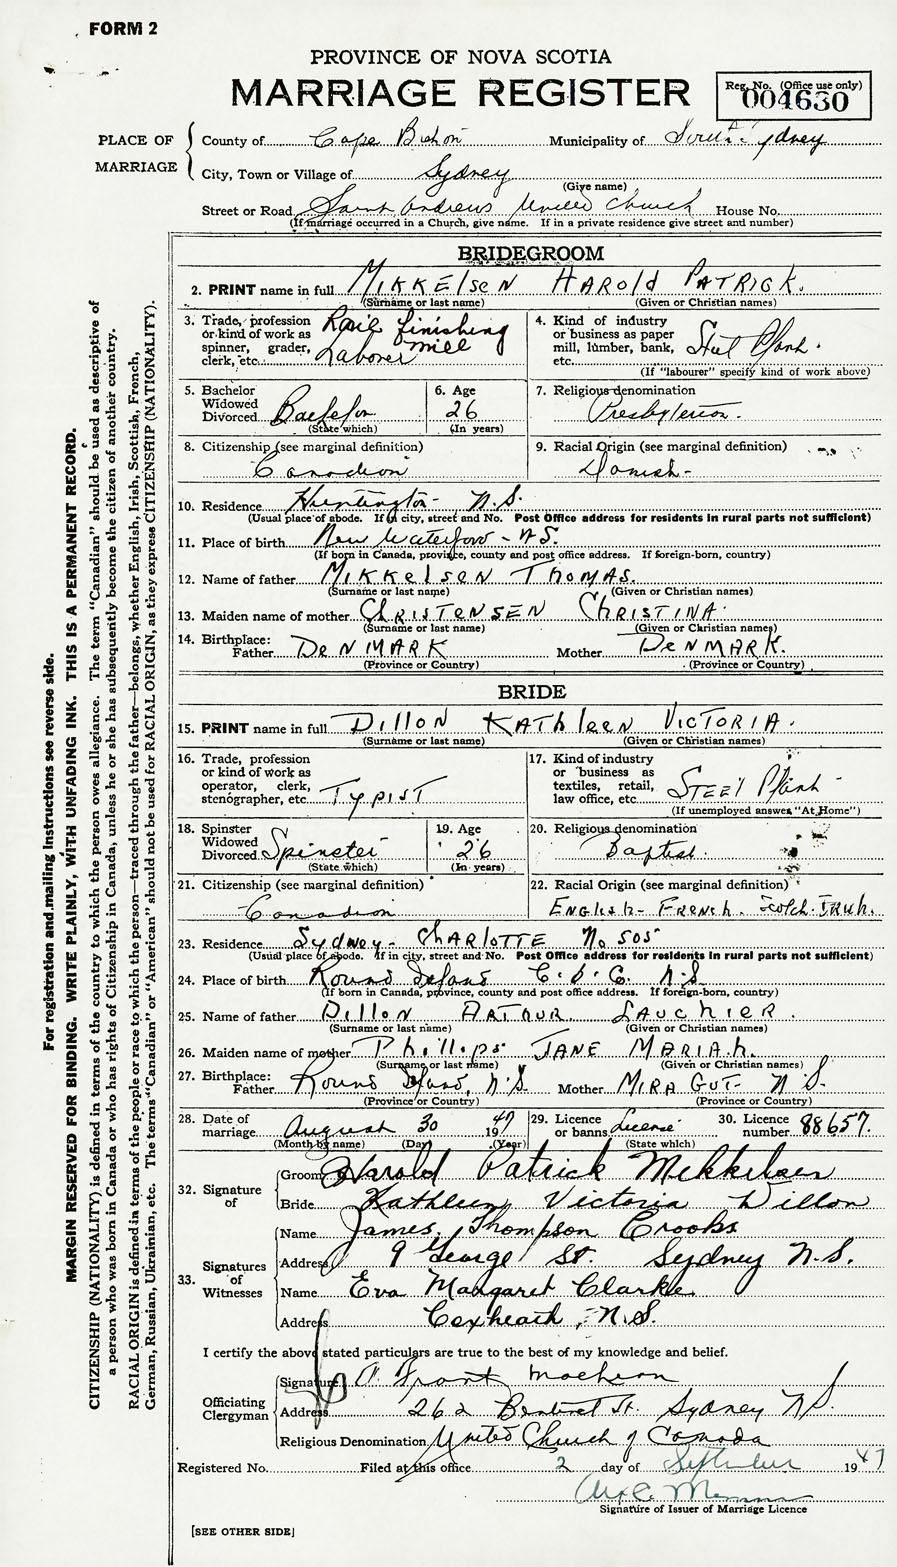 FORM 2
PROVINCE OF NOVA SCOTIA
MARRIAGE REGISTER
Reg. No. (Office use only)
004630
PLACE OF MARRIAGE
County of Cape Breton Municipality of Sydney
City, Town or Village of Sydney
(Give name)
Street or Road Saint Andrews United Church House No.
(If marriage occurred in a Church, give name. If in a private residence give street and number)
BRIDEGROOM
2. PRINT name in full MIKKELSEN HAROLD PATRICK.
(Surname or last name) (Given or Christian names)
3. Trade, profession or kind of work as spinner, grader, clerk, etc. Rail finishing mill Laborer
4. Kind of industry or business as paper mill, lumber, bank, etc. Steel Plant.
(If "labourer" specify kind of work above)
5. Bachelor Widowed Divorced Bachelor
(State which)
6. Age 26
(In years)
7. Religious denomination Presbyterian.
8. Citizenship (see marginal definition) Canadian
9. Racial Origin (see marginal definition) Danish-
10. Residence Huntington N.S.
(Usual place of abode. If in city, street and No. Post Office address for residents in rural parts not sufficient)
11. Place of birth New Waterford - N.S.
(If born in Canada, province, county and post office address. If foreign-born, country)
12. Name of father MIKKELSEN THOMAS.
(Surname or last name) (Given or Christian names)
13. Maiden name of mother CHRISTENSEN CHRISTINA.
(Surname or last name) (Given or Christian names)
14. Birthplace: Father DENMARK Mother DENMARK.
(Province or Country) (Province or Country)
BRIDE
15. PRINT name in full DILLON KATHLEEN VICTORIA.
(Surname or last name) (Given or Christian names)
16. Trade, profession or kind of work as operator, clerk, stenographer, etc. TYPIST
17. Kind of industry or business as textiles, retail, law office, etc. STEEL Plant
(If unemployed answer "At Home")
18. Spinster Widowed Divorced Spinster
(State which)
19. Age 26
(In years)
20. Religious denomination Baptist.
21. Citizenship (see marginal definition) Canadian
22. Racial Origin (see marginal definition) ENGLISH- FRENCH. Scotch IRISH.
23. Residence Sydney- CHARLOTTE No 505
(Usual place of abode. If in city, street and No. Post Office address for residents in rural parts not sufficient)
24. Place of birth Round Island C.B.C. N.S.
(If born in Canada, province, county and post office address. If foreign-born, country)
25. Name of father DILLON ARTHUR LAUCHIER.
(Surname or last name) (Given or Christian names)
26. Maiden name of mother Phillips JANE MARIAH.
(Surname or last name) (Given or Christian names)
27. Birthplace: Father Round Island, N.S. Mother MIRA GUT- N.S.
(Province or Country) (Province or Country)
28. Date of marriage August 30 1947
(Month by name) (Day) (Year)
29. Licence or banns License
(State which)
30. Licence number 88657.
32. Signature of
Groom Harold Patrick Mikkelsen
Bride Kathleen Victoria Dillon
33. Signatures of Witnesses
Name James Thompson Crooks
Address 9 George St. Sydney N.S.
Name Eva Margaret Clarke
Address Coxheath, N.S.
I certify the above stated particulars are true to the best of my knowledge and belief.
Officiating Clergyman
Signature A Frank
Address 262 St. Sydney N.S.
Religious Denomination United Church of Canada
Registered No. Filed at this office 2 day of September 1947
Signature of Issuer of Marriage Licence
[SEE OTHER SIDE]
For registration and mailing instructions see reverse side.
MARGIN RESERVED FOR BINDING. WRITE PLAINLY, WITH UNFADING INK. THIS IS A PERMANENT RECORD.
CITIZENSHIP (NATIONALITY) is defined in terms of the country to which the person owes allegiance. The term "Canadian" should be used as descriptive of
a person who was born in Canada or who has rights of Citizenship in Canada, unless he or she has subsequently become the citizen of another country.
RACIAL ORIGIN is defined in terms of the people or race to which the person—traced through the father—belongs, whether English, Irish, Scottish, French,
German, Russian, Ukrainian, etc. The terms "Canadian" or "American" should not be used for RACIAL ORIGIN, as they express CITIZENSHIP (NATIONALITY).